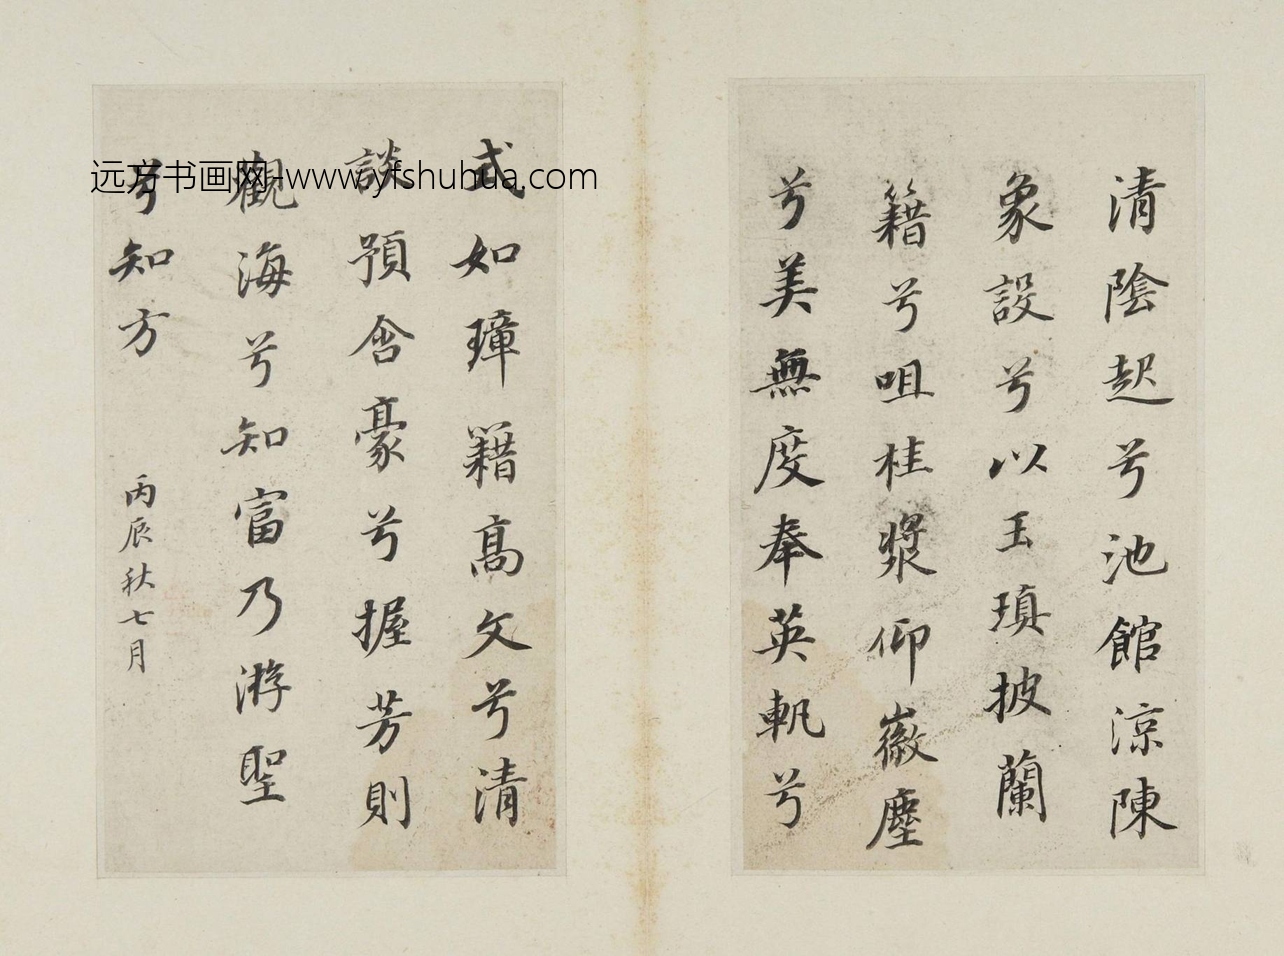 清陰起兮池館涼陳
象設兮以玉瑱披蘭
籍兮咀桂漿仰徽塵
兮美無度奉英軌兮
式如璋籍高文兮清
談預含豪兮握芳則
觀海兮知富乃游聖
兮知方
丙辰秋七月
远方书画网-www.yfshuhua.com